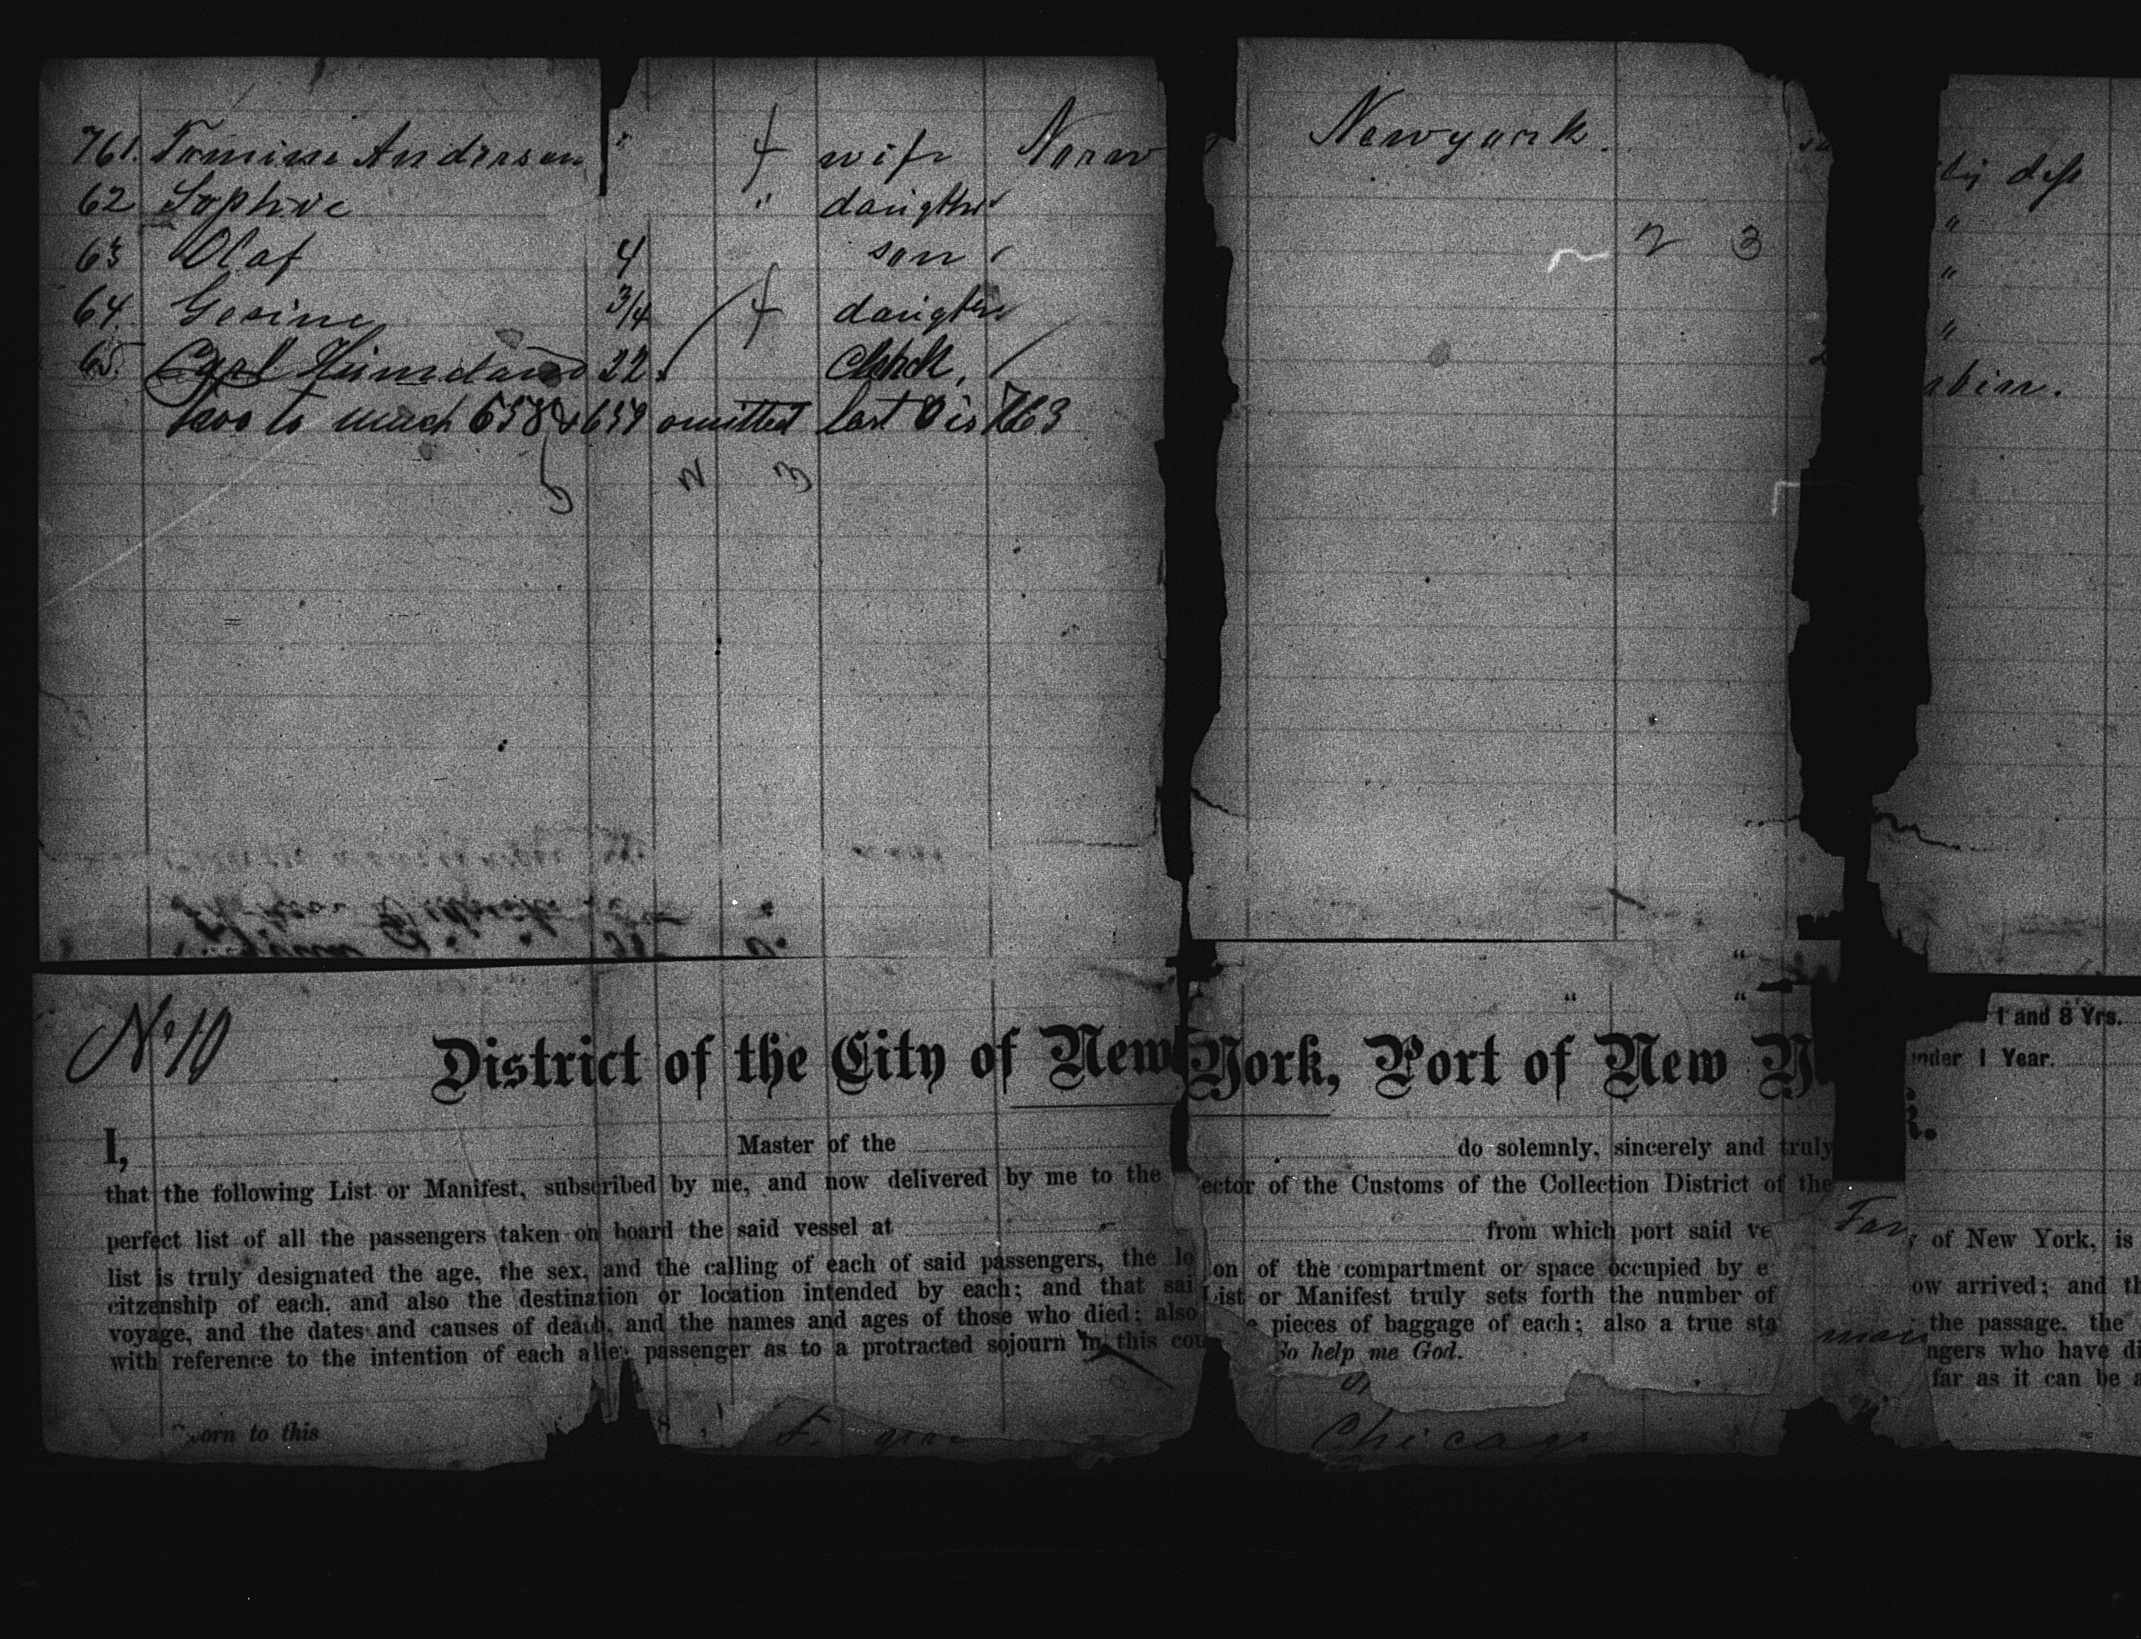 761. Tomine Anderson " f wife Norw Newyourk.
62 Sophie " daugther "
63 Olaf 4 son " 2 3
64. Gesine 3/4 f daugther "
65. Carl 22. Clerk, bin.
two to much 658 & 659 omitted last is 763
2 3
No 10
1 and 8 Yrs.
nder 1 Year.
District of the City of New York, Port of New Y
I, Master of the do solemnly, sincerely and truly
that the following List or Manifest, subscribed by me, and now delivered by me to the ector of the Customs of the Collection District of the of New York, is
perfect list of all the passengers taken on board the said vessel at from which port said ve ow arrived; and th
list is truly designated the age, the sex, and the calling of each of said passengers, the lo on of the compartment or space occupied by e the passage, the
citzenship of each, and also the destination or location intended by each; and that sai List or Manifest truly sets forth the number of ngers who have di
voyage, and the dates and causes of death, and the names and ages of those who died; also e pieces of baggage of each; also a true sta far as it can be a
with reference to the intention of each alien passenger as to a protracted sojourn in this cou So help me God.
orn to this
Chicago